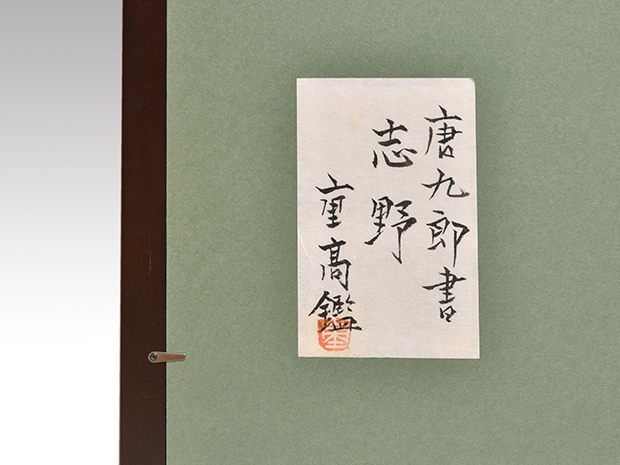 唐九郎書
志野
重高鑑